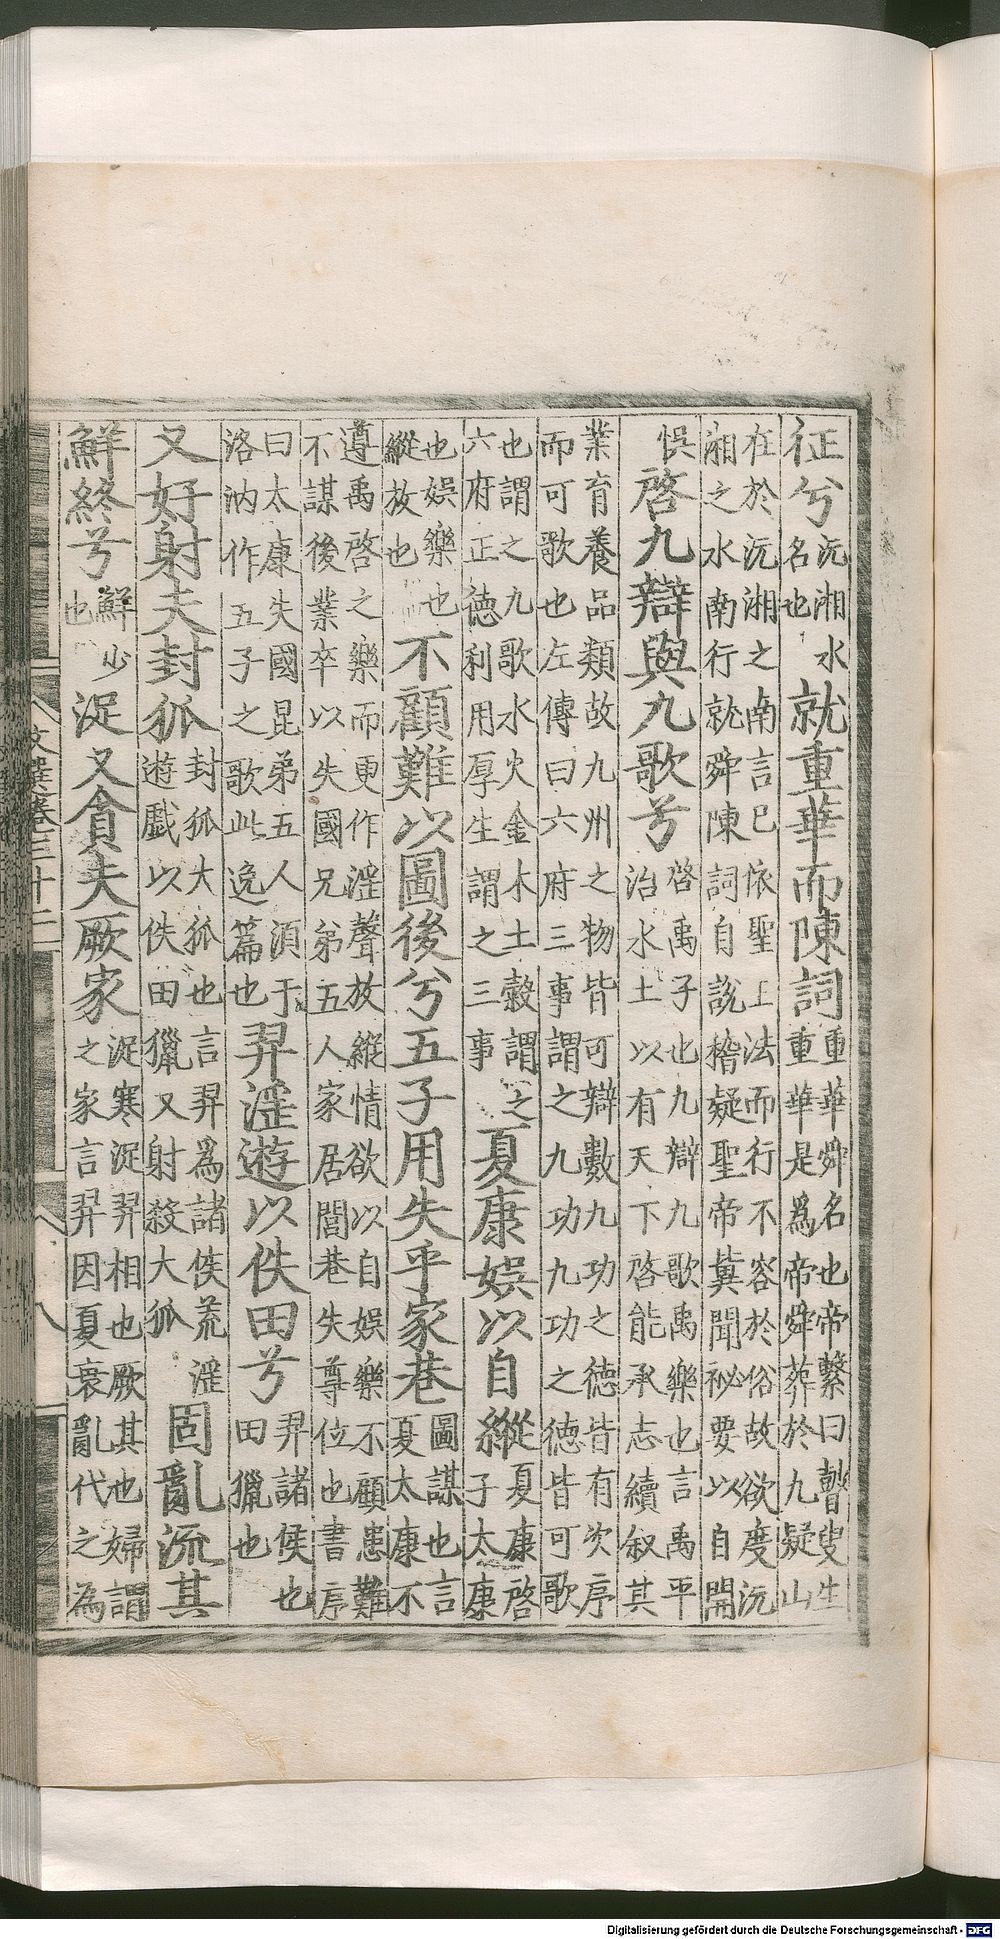 征兮沅湘水名也就重華而陳詞重華舜名也帝繫曰瞽叟生重華是爲帝舜葬於九疑山
在於沅湘之南言已依聖王法而行不容於俗故欲度沅
湘之水南行就舜陳詞自說稽疑聖帝冀聞祕要以自開
悮啓九辯與九歌兮啓禹子也九辯九歌禹樂也言禹平治水土以有天下啓能承志續叙其
業育養品類故九州之物皆可辯數九功之德皆有次序
而可歌也左傳曰六府三事謂之九功九功之德皆可歌
也謂之九歌水火金木土穀謂之六府正德利用厚生謂之三事夏康娛以自縱夏康啓子太康
也娛樂也縱放也不顧難以圖後兮五子用失乎家巷圖謀也言夏太康不
遵禹啓之樂而更作淫聲放縱情欲以自娛樂不顧患難
不謀後業卒以失國兄弟五人家居閭巷失尊位也書序
曰太康失國昆弟五人須于洛汭作五子之歌此逸篇也羿淫遊以佚田兮羿諸侯也田獵也
又好射夫封狐封狐大狐也言羿爲諸侯荒淫遊戲以佚田獵又射殺大狐固亂流其
鮮終兮鮮少也浞又貪夫厥家浞寒浞羿相也厥其也婦謂之家言羿因夏衰亂代之為
文選卷三十二 八
Digitalisierung gefördert durch die Deutsche Forschungsgemeinschaft - DFG